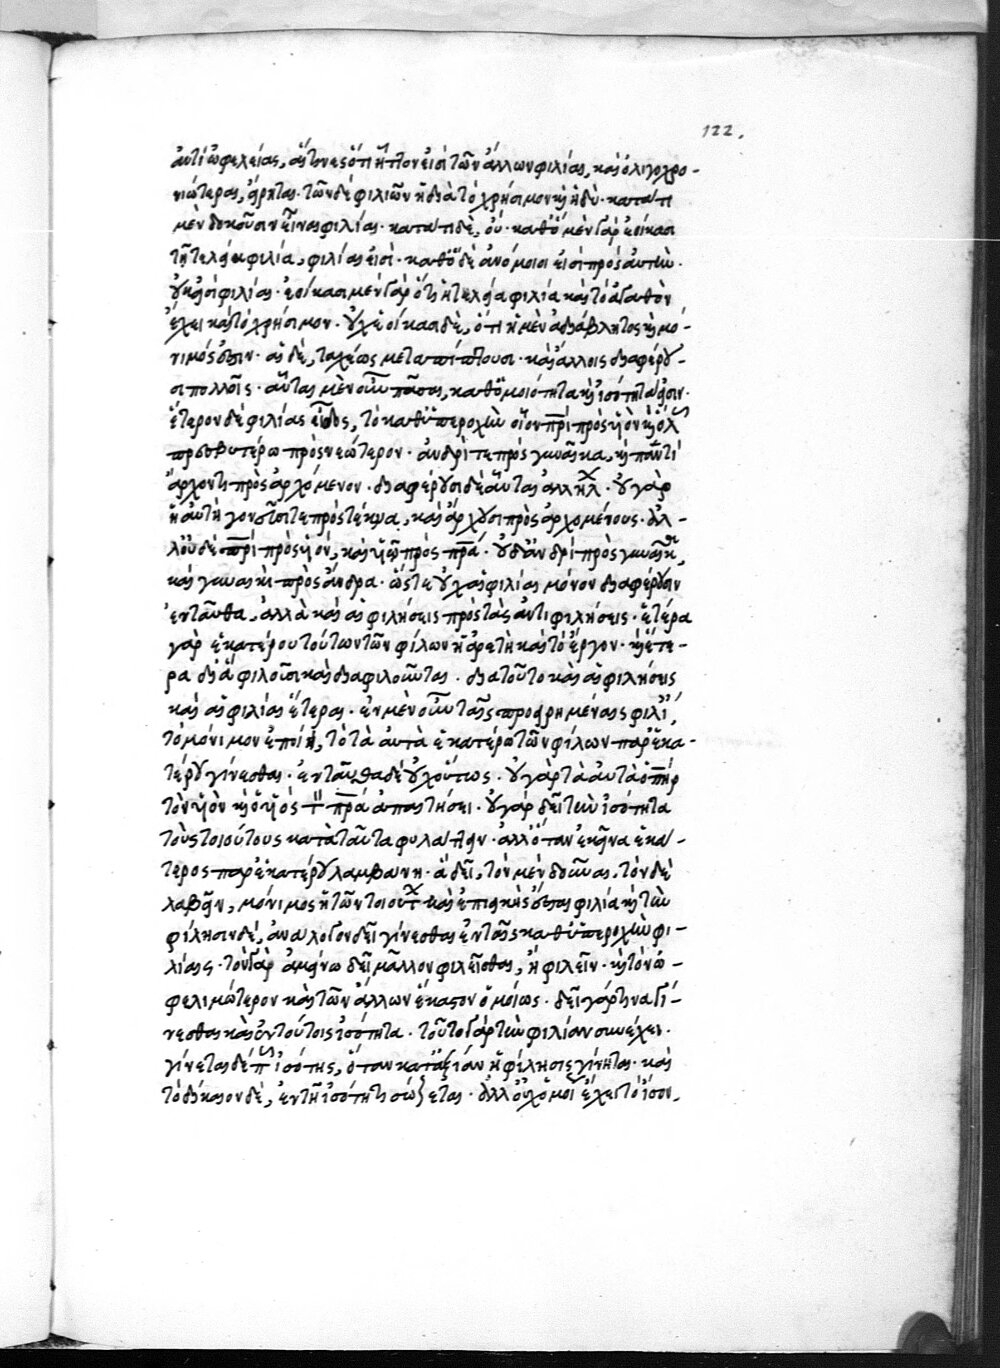 122.
ἀντὶ ὠφελείας, αἵτινες ὅτι ἧττον εἰσὶ τῶν ἄλλων φιλίαι, καὶ ὀλιγοχρο-
νιώτεραι, εἴρηται. τῶν δὲ φιλιῶν ἡ διὰ τὸ χρήσιμον κ ἡδὺ. κατά τι
μὲν δοκοῦσιν εἶναι φιλίαι. κατά τι δὲ, οὐ. καθ' ὃ μὲν γὰρ ἐοίκασι
τῇ τελεία φιλία, φιλίαι εἰσὶ. καθ' ὃ δὲ ἀνόμοιοι εἰσὶ πρὸς αὐτὴν.
οὐκ εἰσὶ φιλίαι. ἐοίκασι μὲν γὰρ ὅτι ἡ τελεία φιλία καὶ τὸ ἀγαθὸν
ἔχει καὶ τὸ χρήσιμον. οὐχ ἐοίκασι δὲ, ὅτι ἡ μὲν ἀδιάβλητος κ μό-
νιμός ἐστιν. αἱ δὲ, ταχέως μεταπίπτουσι. καὶ ἄλλοις διαφέρου-
σι πολλοῖς. αὗται μὲν οὖν πᾶσαι, καθ' ὁμοιότητα κ ἰσότητα εἰσιν.
ἕτερον δὲ φιλίας εἶδος, τὸ καθ' ὑπεροχὴν οἷον πρὶ πρὸς υἱὸν κ ὅλως
πρεσβυτέρω πρὸς νεώτερον. ἀνδρί τε πρὸς γυναῖκα, κ παντὶ
ἄρχοντι πρὸς ἀρχόμενον. διαφέρουσι δὲ αὗται ἀλλήλ. οὐ γὰρ
ἡ αὐτὴ γονεῦσί τε πρὸς τέκνα, καὶ ἄρχουσι πρὸς ἀρχομένους. ἀλ-
λ' οὐδὲ πρὶ πρὸς υἱόν, καὶ υἱῶ πρὸς πρα. οὐδ' ἀνδρὶ πρὸς γυναῖκ,
καὶ γυναικὶ πρὸς ἄνδρα. ὥστε οὐχ αἱ φιλίαι μόνον διαφέρουσιν
ἐνταῦθα, ἀλλὰ καὶ αἱ φιλήσεις πρὸς τὰς ἀντιφιλήσεις. ἑτέρα
γὰρ ἑκατέρου τούτων τῶν φίλων ἡ ἀρετὴ καὶ τὸ ἔργον. κ ἕτε-
ρα δι' ἃ φιλοῦσι καὶ διαφιλοῦνται. διὰ τοῦτο καὶ αἱ φιλήσεις
καὶ αἱ φιλίαι ἕτεραι. ἐν μὲν οὖν ταῖς προειρημέναις φιλί,
τὸ μόνιμον ἐποίει, τὸ τὰ αὐτὰ ἑκατέρω τῶν φίλων παρ' ἑκα-
τέρου γίνεσθαι. ἐνταῦθα δὲ οὐχ οὕτως. οὐ γὰρ τὰ αὐτὰ ὁ πηρ
τὸν υἱὸν κ ὁ υἱὸς τὸν πρα ἀπαιτήσει. οὐ γὰρ δεῖ τὴν ἰσότητα
τοὺς τοιούτους κατὰ ταῦτα φυλάττειν. ἀλλ' ὅταν ἐκεῖνα ἑκά-
τερος παρ' ἑκατέρου λαμβάνη. ἃ δεῖ, τὸν μὲν δοῦναι, τὸν δὲ
λαβεῖν, μόνιμος ἡ τῶν τοιούτ καὶ ἐπιεικὴς ἔσται φιλία κ τὴν
φίλησιν δὲ, ἀνάλογον δεῖ γίνεσθαι ἐν ταῖς καθ' ὑπεροχὴν φι-
λίαις. τὸν γὰρ ἀμείνω δεῖ μᾶλλον φιλεῖσθαι, ἢ φιλεῖν. κ τὸν ὠ-
φελιμώτερον καὶ τῶν ἄλλων ἕκαστον ὁμοίως. δεῖ γάρ τινα γί-
νεσθαι καὶ ἐν τούτοις ἰσότητα. τοῦτο γὰρ τὴν φιλίαν συνέχει.
γίνεται δέ πως ἰσότης, ὅταν κατ' ἀξίαν ἡ φίλησις γίνηται. καὶ
τὸ δίκαιον δὲ, ἐν τῇ ἰσότητι σώζεται. ἀλλ' οὐχ ὁμοί ἔχει τὸ ἴσον,